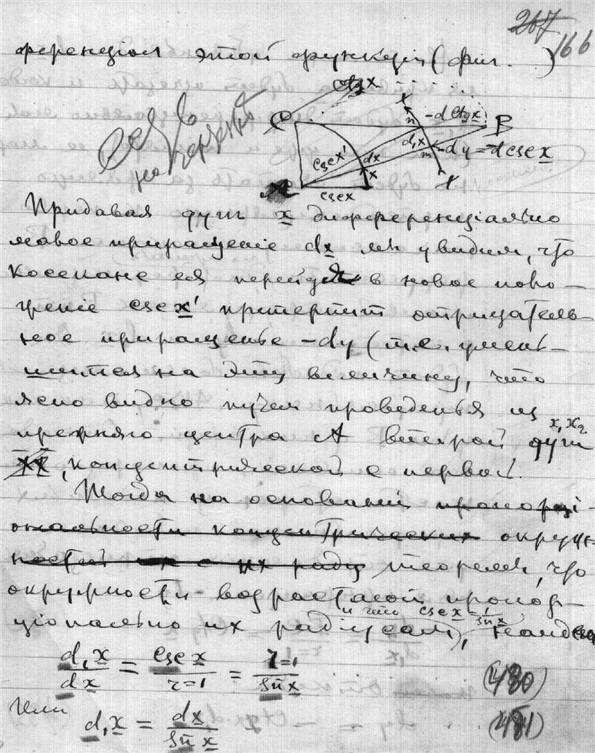 267
166
ференціал этой функціи (фиг. )
есть
на чертежѣ
ctg x
C
B
-d ctg x
d₁x
-dy = -d csc x
csc x'
dx
x
csc x
Придавая дугѣ x дифференціально
малое приращеніе dx мы увидим, что
косеканс ея перейдя в новое поло-
женіе csc x' претерпит отрицатель-
ное приращенье -dy (т.е. умень-
шится на эту величину, что
ясно видно путем проведенья из
прежняго центра A второй дуги x₁x₂
xx, концентрической с первой.
Тогда на основаніи пропорці-
ональности концентрических окруж-
ностей их радіу теоремы, что
окружности возрастают пропор-
ціонально их радіусам, и что csc x = 1/sn x, найдем
d₁x/dx = csc x/r=1 = r=1/sn x (480)
Или d₁x = dx/sn x (481)